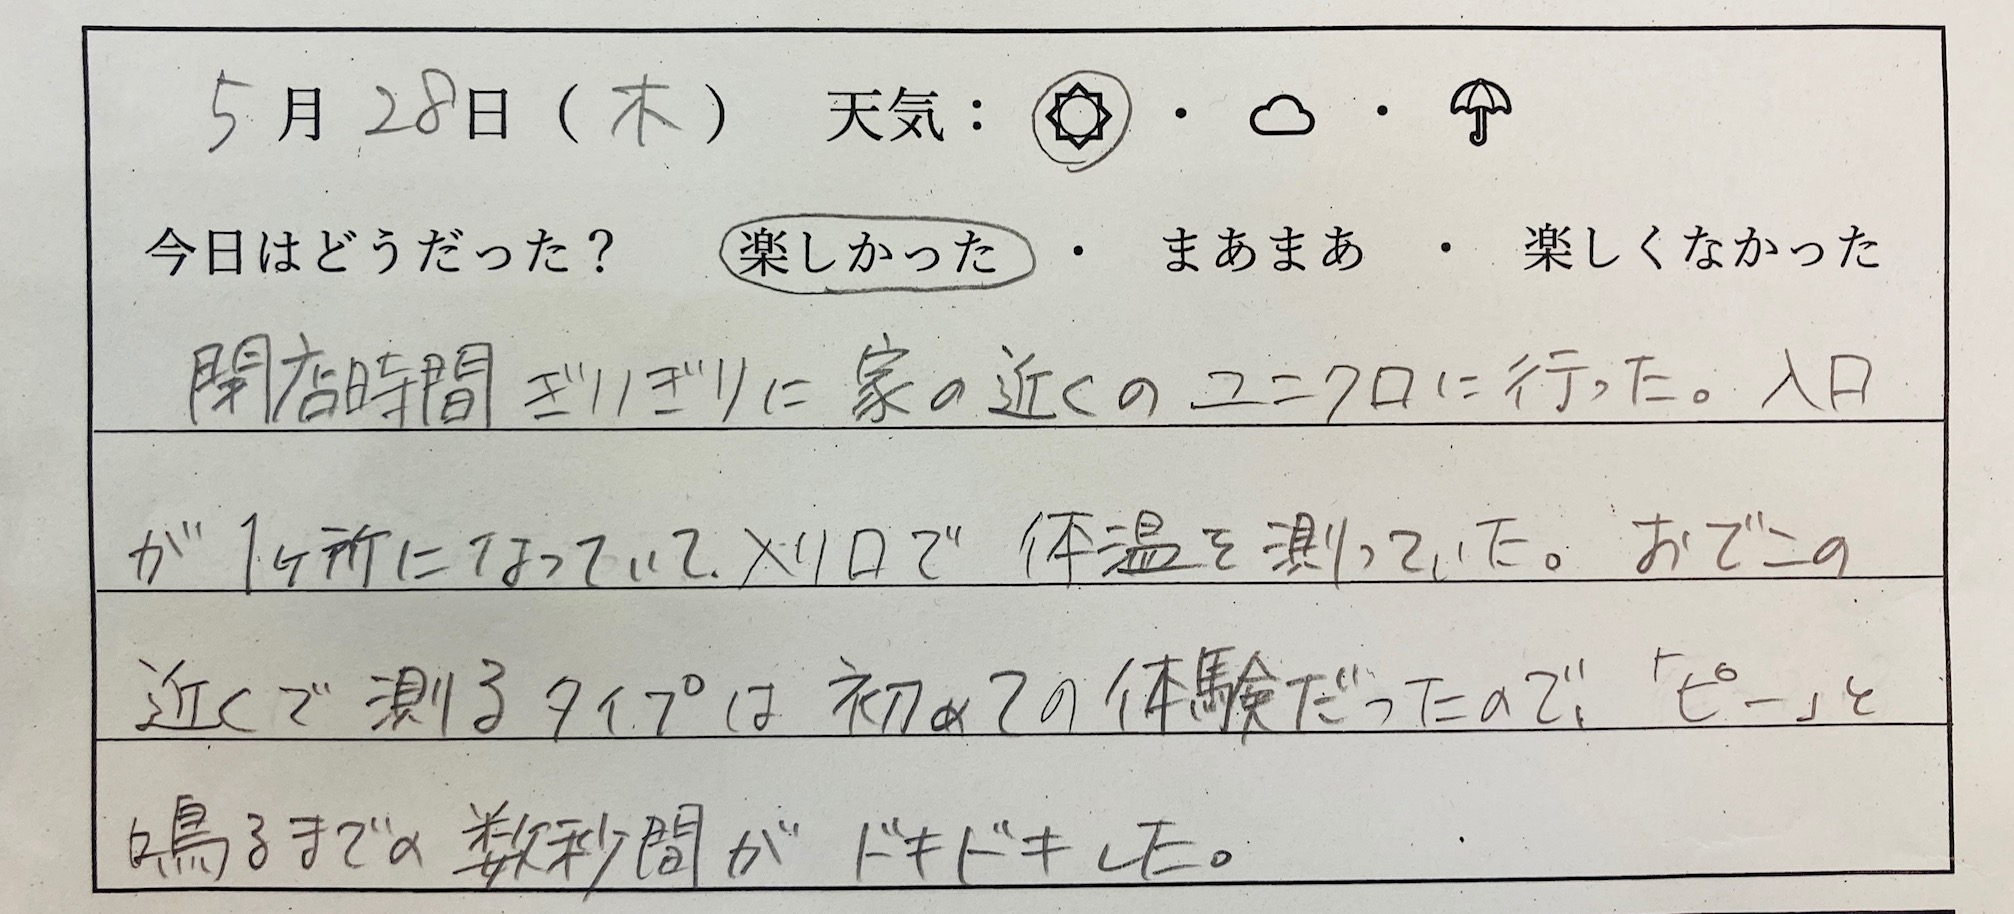 5月28日（木） 天気： ・ ・
今日はどうだった？ 楽しかった ・ まあまあ ・ 楽しくなかった
閉店時間ぎりぎりに家の近くのユニクロに行った。入口
が1ヶ所になっていて、入り口で体温を測っていた。おでこの
近くで測るタイプは初めての体験だったので、「ピー」と
鳴るまでの数秒間がドキドキした。